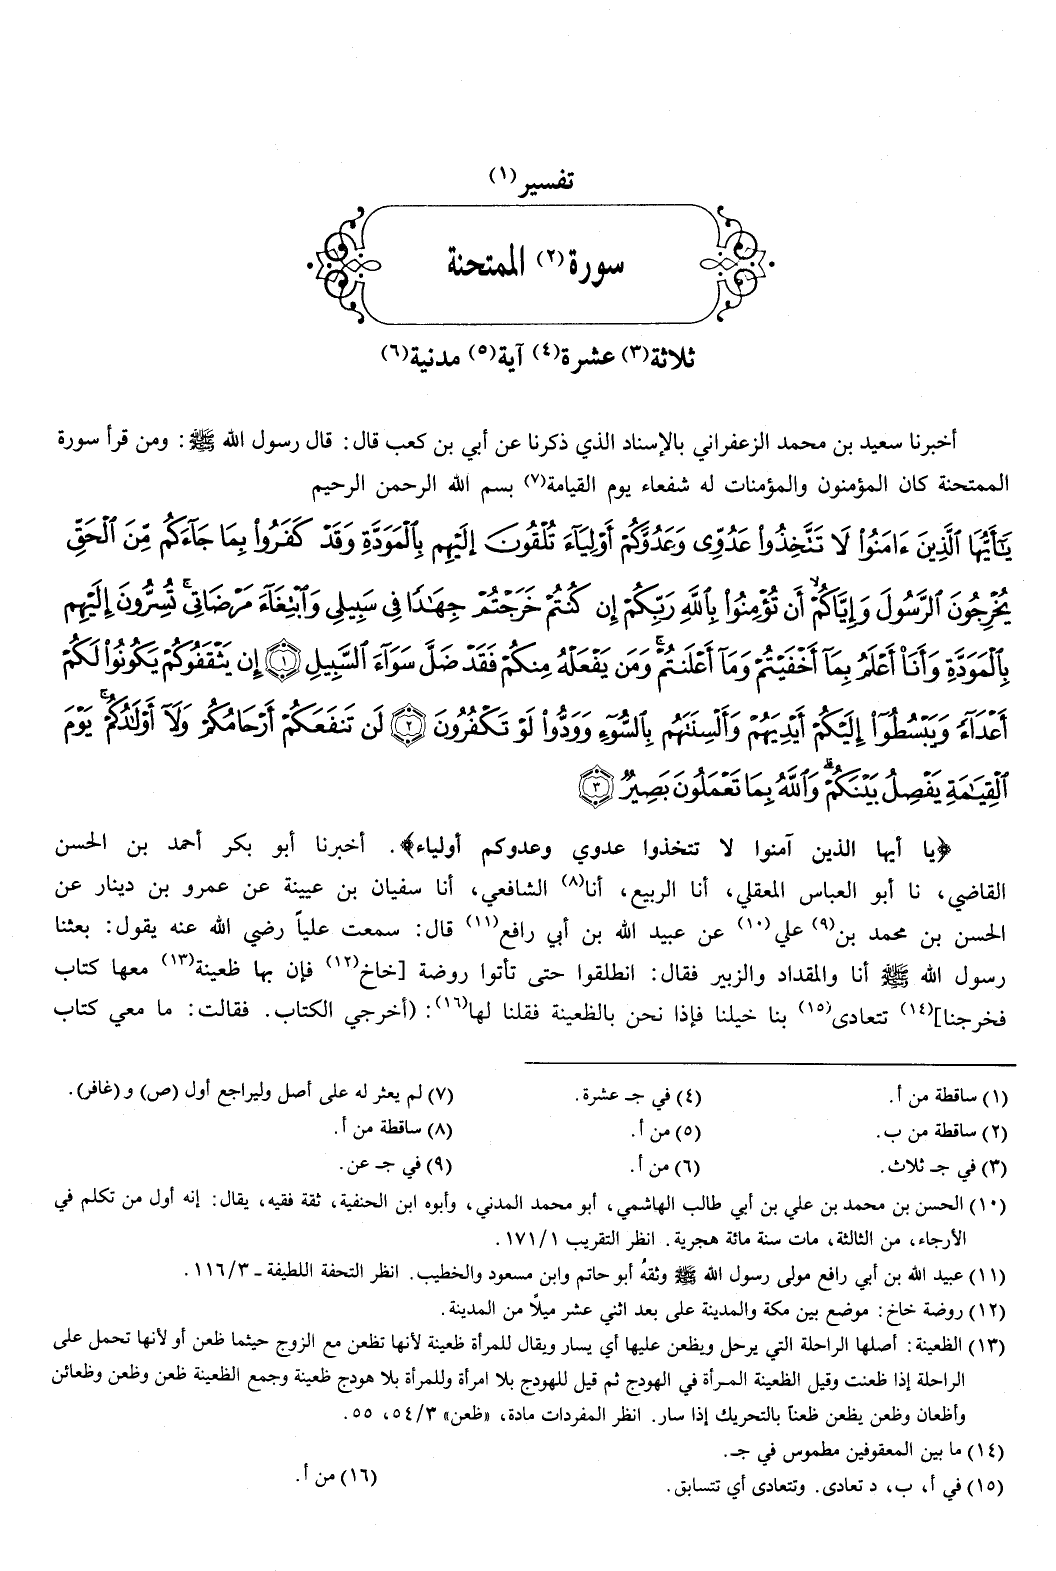 تفسير(١)
سورة(٢) الممتحنة
ثلاثة(٣) عشرة(٤) آية(٥) مدنية(٦)
أخبرنا سعيد بن محمد الزعفراني بالإسناد الذي ذكرنا عن أبي بن كعب قال: قال رسول الله ﷺ: ومن قرأ سورة
الممتحنة كان المؤمنون والمؤمنات له شفعاء يوم القيامة(٧) بسم الله الرحمن الرحيم
يَٰٓأَيُّهَا ٱلَّذِينَ ءَامَنُوا۟ لَا تَتَّخِذُوا۟ عَدُوِّى وَعَدُوَّكُمْ أَوْلِيَآءَ تُلْقُونَ إِلَيْهِم بِٱلْمَوَدَّةِ وَقَدْ كَفَرُوا۟ بِمَا جَآءَكُم مِّنَ ٱلْحَقِّ
يُخْرِجُونَ ٱلرَّسُولَ وَإِيَّاكُمْ ۙ أَن تُؤْمِنُوا۟ بِٱللَّهِ رَبِّكُمْ إِن كُنتُمْ خَرَجْتُمْ جِهَٰدًا فِى سَبِيلِى وَٱبْتِغَآءَ مَرْضَاتِى ۚ تُسِرُّونَ إِلَيْهِم
بِٱلْمَوَدَّةِ وَأَنَا۠ أَعْلَمُ بِمَآ أَخْفَيْتُمْ وَمَآ أَعْلَنتُمْ ۚ وَمَن يَفْعَلْهُ مِنكُمْ فَقَدْ ضَلَّ سَوَآءَ ٱلسَّبِيلِ ١ إِن يَثْقَفُوكُمْ يَكُونُوا۟ لَكُمْ
أَعْدَآءً وَيَبْسُطُوٓا۟ إِلَيْكُمْ أَيْدِيَهُمْ وَأَلْسِنَتَهُم بِٱلسُّوٓءِ وَوَدُّوا۟ لَوْ تَكْفُرُونَ ٢ لَن تَنفَعَكُمْ أَرْحَامُكُمْ وَلَآ أَوْلَٰدُكُمْ ۚ يَوْمَ
ٱلْقِيَٰمَةِ يَفْصِلُ بَيْنَكُمْ ۚ وَٱللَّهُ بِمَا تَعْمَلُونَ بَصِيرٌ ٣
﴿يا أيها الذين آمنوا لا تتخذوا عدوي وعدوكم أولياء﴾. أخبرنا أبو بكر أحمد بن الحسن
القاضي، نا أبو العباس المعقلي، أنا الربيع، أنا(٨) الشافعي، أنا سفيان بن عيينة عن عمرو بن دينار عن
الحسن بن محمد بن(٩) علي(١٠) عن عبيد الله بن أبي رافع(١١) قال: سمعت علياً رضي الله عنه يقول: بعثنا
رسول الله ﷺ أنا والمقداد والزبير فقال: انطلقوا حتى تأتوا روضة [خاخ(١٢) فإن بها ظعينة(١٣) معها كتاب
فخرجنا](١٤) تتعادى(١٥) بنا خيلنا فإذا نحن بالظعينة فقلنا لها(١٦): (أخرجي الكتاب. فقالت: ما معي كتاب
(١) ساقطة من أ. (٤) في جـ عشرة. (٧) لم يعثر له على أصل وليراجع أول (ص) و (غافر).
(٢) ساقطة من ب. (٥) من أ. (٨) ساقطة من أ.
(٣) في جـ ثلاث. (٦) من أ. (٩) في جـ عن.
(١٠) الحسن بن محمد بن علي بن أبي طالب الهاشمي، أبو محمد المدني، وأبوه ابن الحنفية، ثقة فقيه، يقال: إنه أول من تكلم في
الأرجاء، من الثالثة، مات سنة مائة هجرية. انظر التقريب ١٧١/١.
(١١) عبيد الله بن أبي رافع مولى رسول الله ﷺ وثقهُ أبو حاتم وابن مسعود والخطيب. انظر التحفة اللطيفة ـ ١١٦/٣.
(١٢) روضة خاخ: موضع بين مكة والمدينة على بعد اثني عشر ميلاً من المدينة.
(١٣) الظعينة: أصلها الراحلة التي يرحل ويظعن عليها أي يسار ويقال للمرأة ظعينة لأنها تظعن مع الزوج حيثما ظعن أو لأنها تحمل على
الراحلة إذا ظعنت وقيل الظعينة المرأة في الهودج ثم قيل للهودج بلا امرأة وللمرأة بلا هودج ظعينة وجمع الظعينة ظعن وظعن وظعائن
وأظعان وظعن يظعن ظعناً بالتحريك إذا سار. انظر المفردات مادة، «ظعن» ٥٤/٣، ٥٥.
(١٤) ما بين المعقوفين مطموس في جـ.
(١٥) في أ، ب، د تعادى. وتتعادى أي تتسابق. (١٦) من أ.